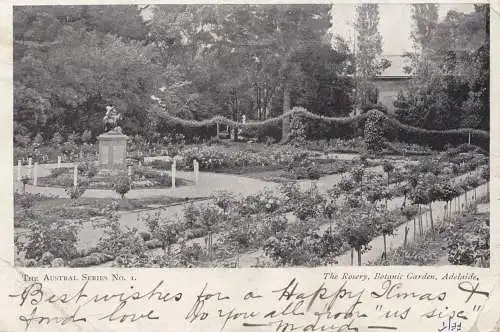 THE AUSTRAL SERIES No. 1.
The Rosery, Botanic Garden, Adelaide.
Best wishes for a Happy Xmas &
fond love to you all from "us six"
Maud